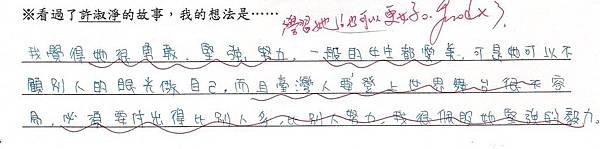 ※看過了許淑淨的故事，我的想法是……學習她！也可以更好。
我覺得她很勇敢、堅強、努力，一般的女生都愛美，可是她可以不
顧別人的眼光做自己，而且臺灣人要登上世界舞台很不容
易，必須要付出得比別人多，比別人努力，我很佩服她堅強的毅力。